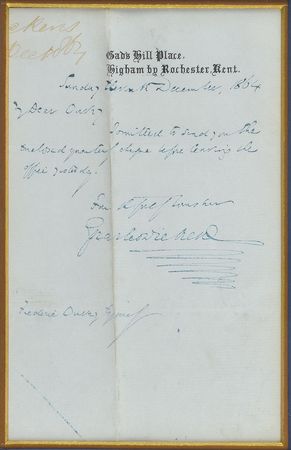 Gad's Hill Place,
Higham by Rochester, Kent.
Sunday December, 1864
My Dear Ouvry
I omitted to send you the
enclosed quarter's cheque before leaving the
office yesterday.
Faithfully Yours ever
Charles Dickens
Frederic Ouvry Esquire